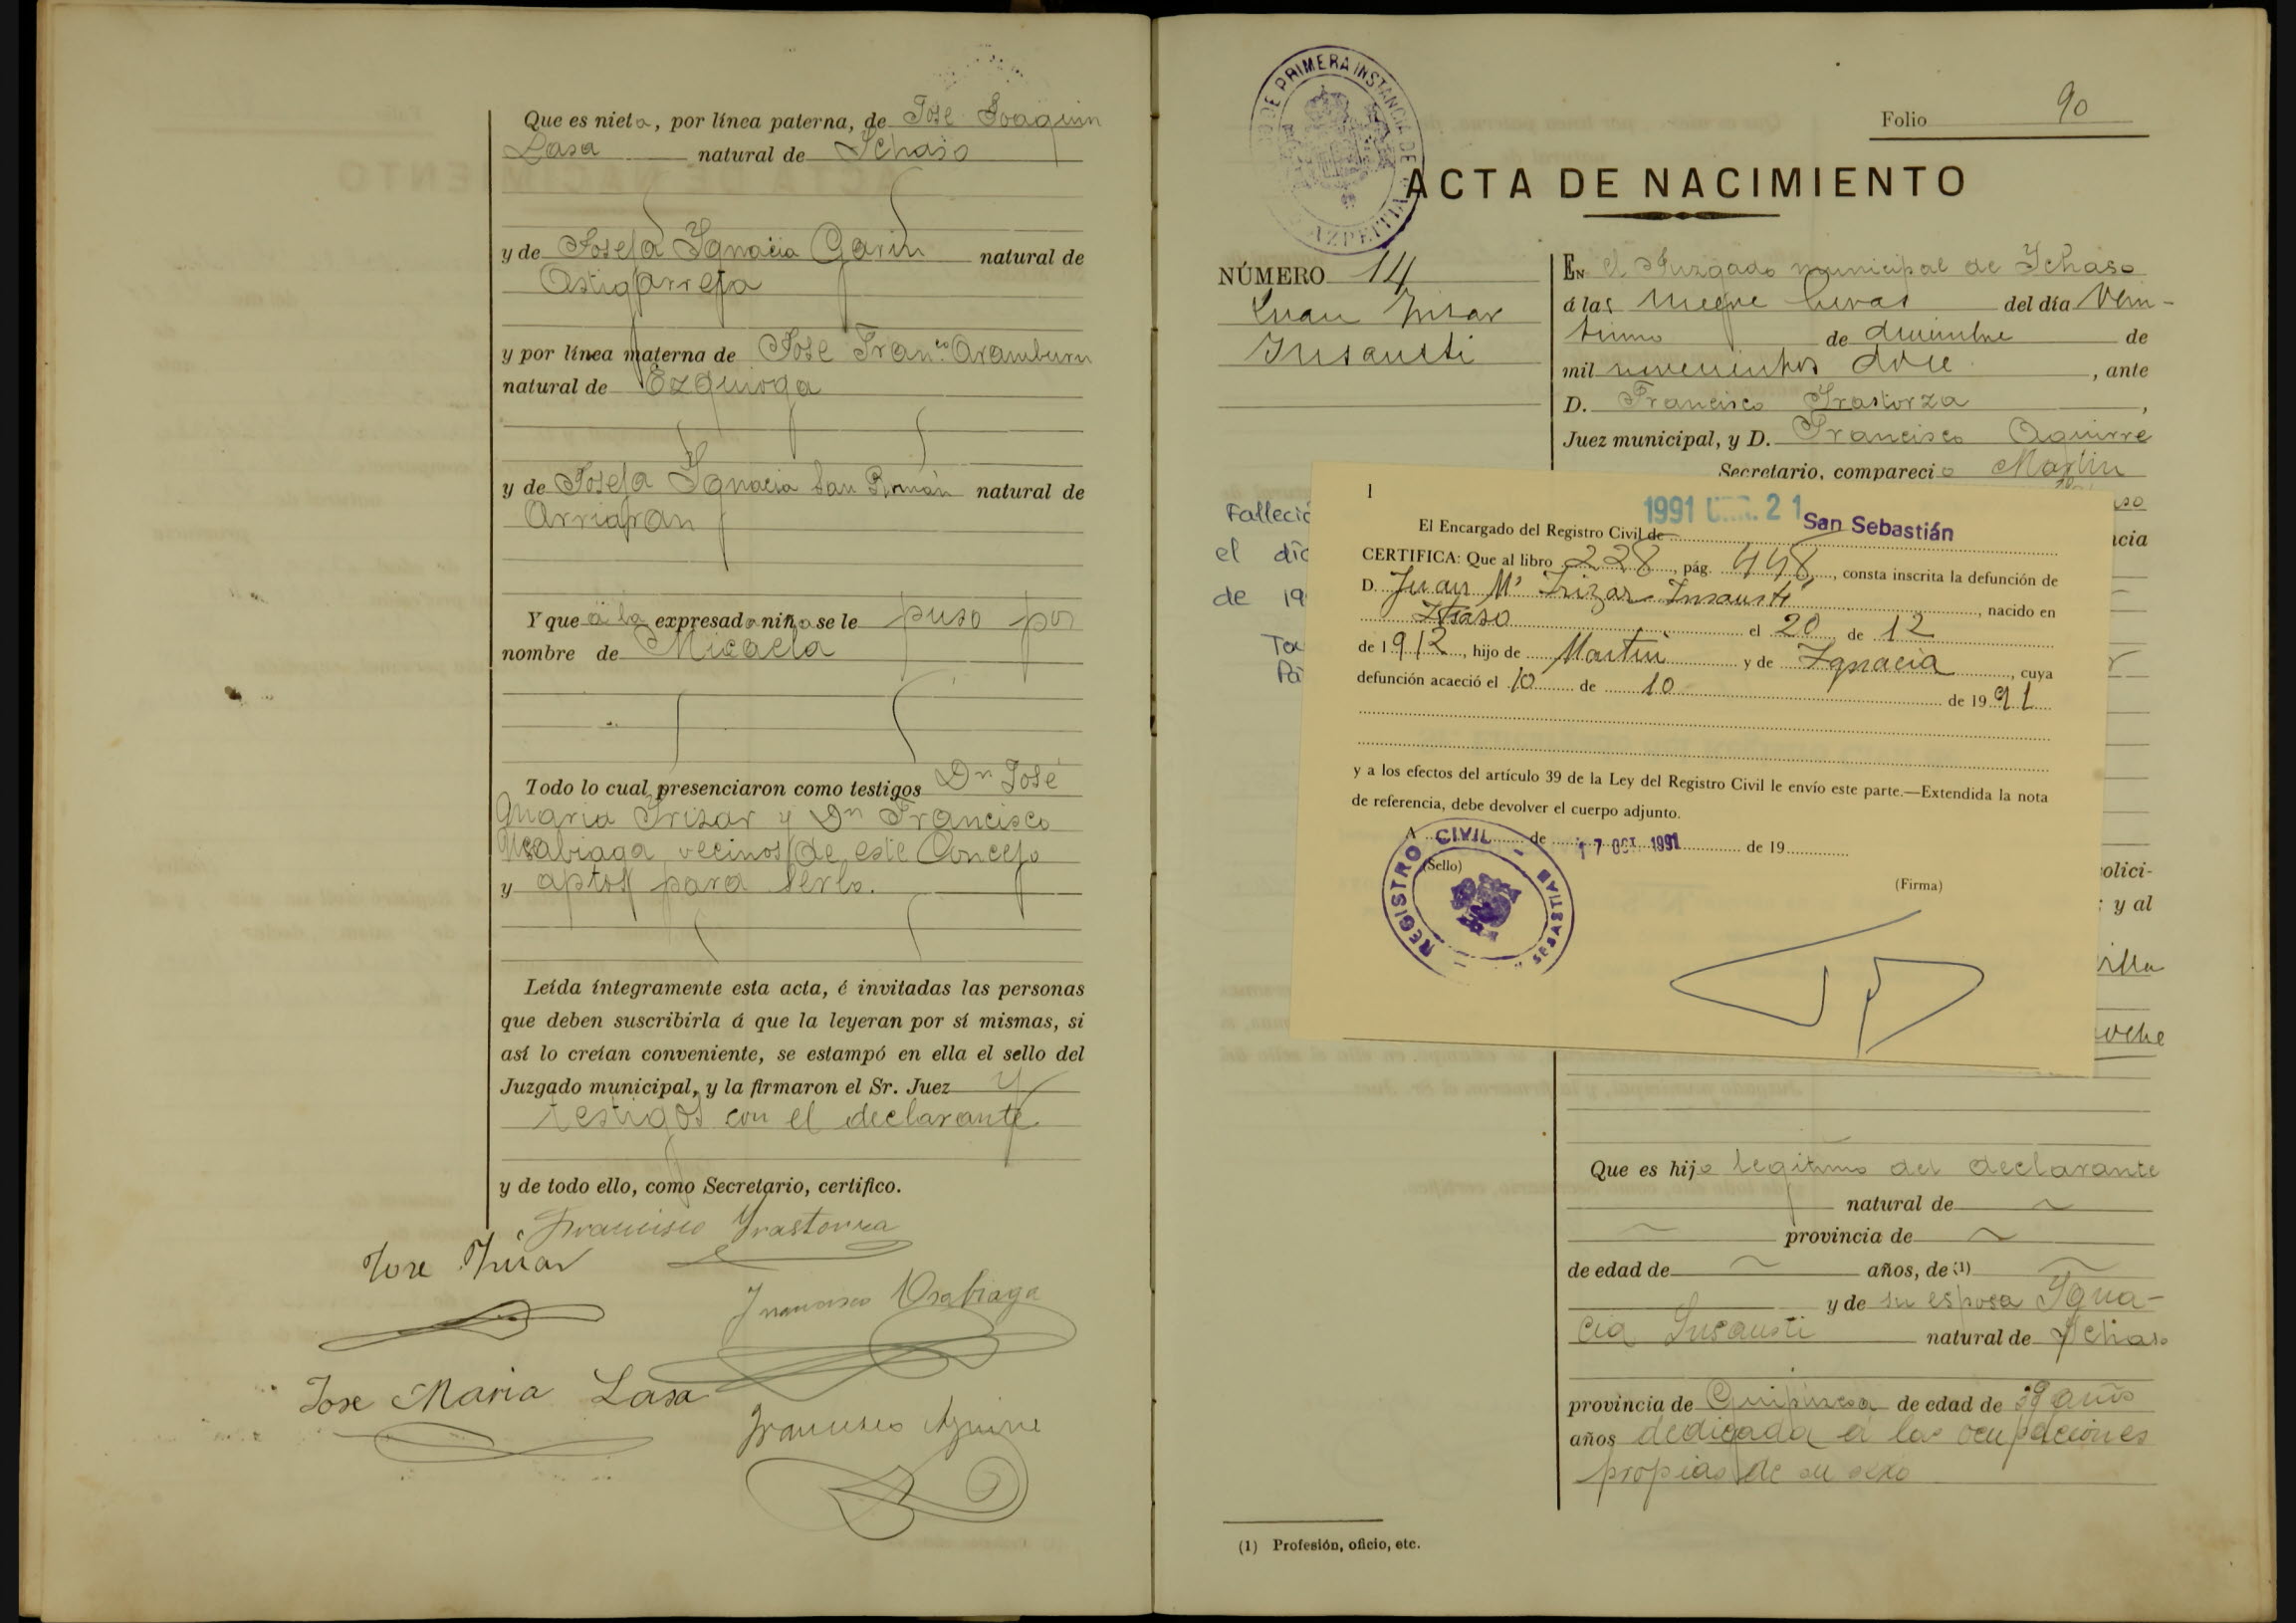 Que es nieta, por línea paterna, de Jose Joaquin
Lasa natural de Ichaso
y de Josefa Ignacia Garin natural de
Astigarreta
y por línea materna de Jose Fran.co Aramburu
natural de Ezquioga
y de Josefa Ignacia San Román natural de
Arriaran
Y que a la expresada niña se le puso por
nombre de Micaela
Todo lo cual presenciaron como testigos Dn José
Maria Irizar y Dn Francisco
Usabiaga vecinos de este Concejo
y aptos para serlo.
Leída íntegramente esta acta, é invitadas las personas
que deben suscribirla á que la leyeran por sí mismas, si
así lo creían conveniente, se estampó en ella el sello del
Juzgado municipal, y la firmaron el Sr. Juez y
testigos con el declarante
y de todo ello, como Secretario, certifico.
Francisco Irastorza
Jose Irizar
Francisco Usabiaga
Jose Maria Lasa
Francisco Aguirre
DE PRIMERA INSTANCIA DE
AZPEITIA
Folio 90
ACTA DE NACIMIENTO
NÚMERO 14
Juan Irizar
Insausti
EN el Juzgado municipal de Ichaso
á las nueve horas del día Vein-
tiuno de diciembre de
mil novecientos doce, ante
D. Francisco Irastorza,
Juez municipal, y D. Francisco Aguirre
Secretario, compareció Martin
Falleció
el día
de 19
1
1991 21
El Encargado del Registro Civil de San Sebastián
CERTIFICA: Que al libro 228, pág. 448, consta inscrita la defunción de
D. Juan Mª Irizar Insausti, nacido en
Itsaso el 20 de 12
de 1912, hijo de Martin y de Ignacia, cuya
defunción acaeció el 10 de 10 de 1991
y a los efectos del artículo 39 de la Ley del Registro Civil le envío este parte.—Extendida la nota
de referencia, debe devolver el cuerpo adjunto.
A de 17 OCT 1991 de 19
(Sello)
(Firma)
REGISTRO CIVIL
SEBASTIAN
ncia
olici-
: y al
oche
Que es hijo legitimo del declarante
natural de ~
~ provincia de ~
de edad de ~ años, de (1) ~
y de su esposa Igna-
cia Insausti natural de Ichaso
provincia de Guipuzcoa de edad de 39 años
años dedicada a las ocupaciones
propias de su sexo
(1) Profesión, oficio, etc.